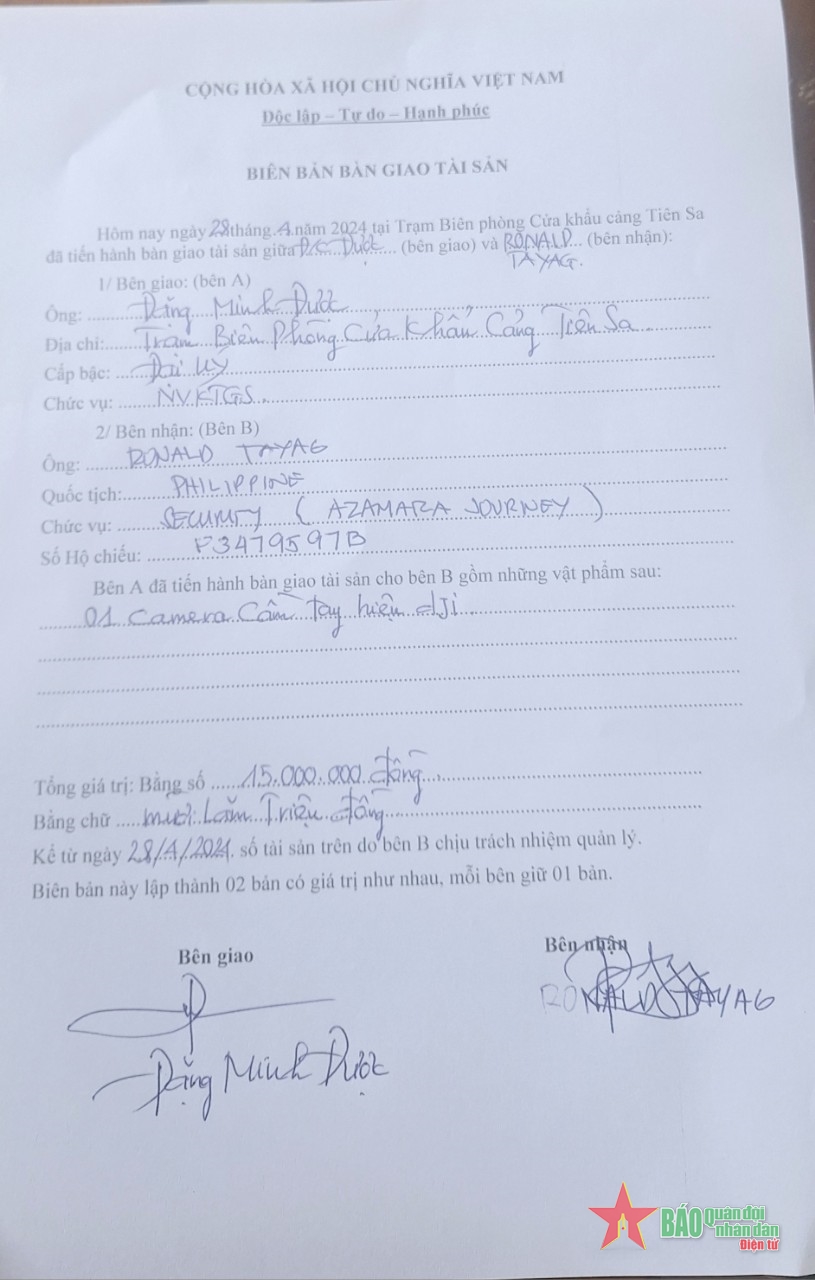 CỘNG HÒA XÃ HỘI CHỦ NGHĨA VIỆT NAM
Độc lập – Tự do – Hạnh phúc
BIÊN BẢN BÀN GIAO TÀI SẢN
Hôm nay ngày 28 tháng 4 năm 2024 tại Trạm Biên phòng Cửa khẩu cảng Tiên Sa
đã tiến hành bàn giao tài sản giữa Đ/c Dược (bên giao) và RONALD (bên nhận):
TAYAG.
1/ Bên giao: (bên A)
Ông: Đặng Minh Dược
Địa chỉ: Trạm Biên Phòng Cửa Khẩu Cảng Tiên Sa
Cấp bậc: Đại Uý
Chức vụ: NVKTGS
2/ Bên nhận: (Bên B)
Ông: RONALD TAYAG
Quốc tịch: PHILIPPINE
Chức vụ: SECURITY (AZAMARA JOURNEY)
Số Hộ chiếu: P3479597B
Bên A đã tiến hành bàn giao tài sản cho bên B gồm những vật phẩm sau:
01 Camera Cầm Tay hiệu dJi
Tổng giá trị: Bằng số 15.000.000 đồng
Bằng chữ mười Lăm Triệu đồng
Kể từ ngày 28/4/2024. số tài sản trên do bên B chịu trách nhiệm quản lý.
Biên bản này lập thành 02 bản có giá trị như nhau, mỗi bên giữ 01 bản.
Bên giao
Bên nhận
RONALD TAYAG
Đặng Minh Dược
BÁO quân đội
nhân dân
Điện tử